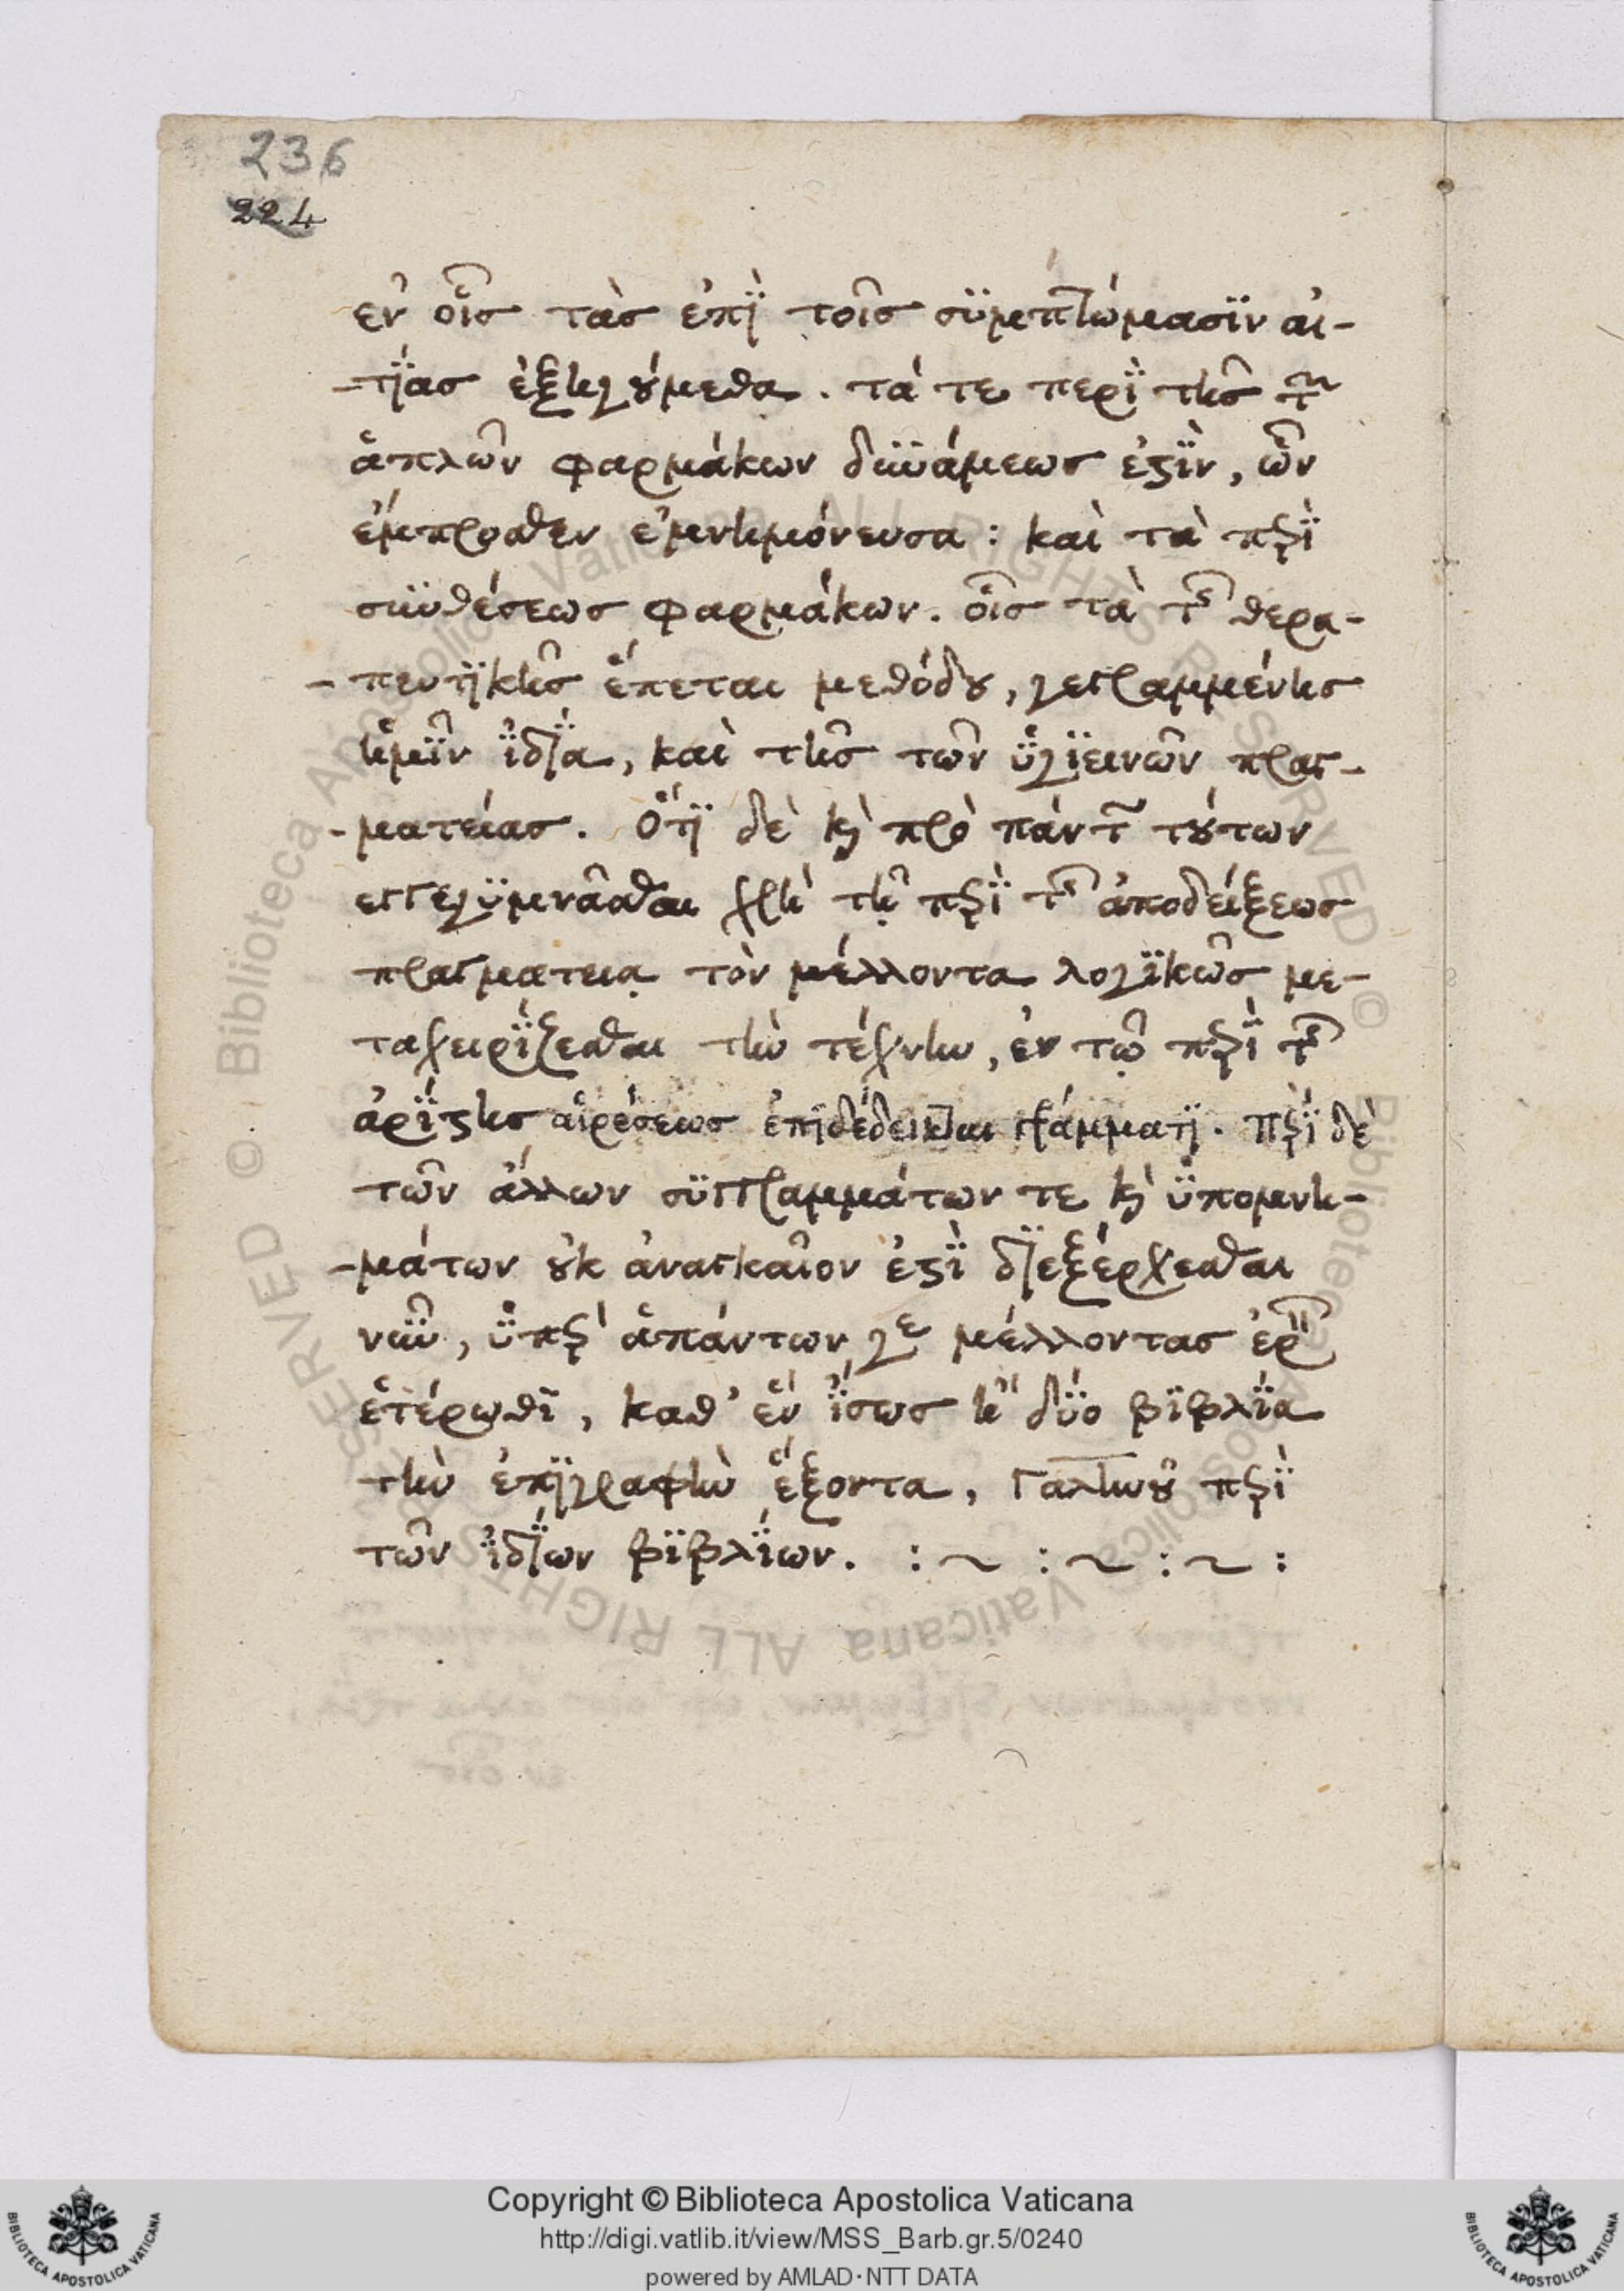 236
224
ἐν οἷς τὰς ἐπὶ τοῖς συμπτώμασιν αἰ-
-τίας ἐξηγούμεθα. τά τε περὶ τῆς τῶν
ἁπλῶν φαρμάκων δυνάμεως ἐστὶν, ὧν
ἔμπροσθεν ἐμνημόνευσα: καὶ τὰ περὶ
συνθέσεως φαρμάκων. οἷς τὰ τῆς θερα-
-πευτικῆς ἕπεται μεθόδου, γεγραμμένης
ἡμῖν ἰδίᾳ, καὶ τῆς τῶν ὑγιεινῶν πραγ-
-ματείας. Ὅτι δὲ καὶ πρὸ πάντων τούτων
ἐγγεγυμνᾶσθαι χρὴ τῇ περὶ τῆς ἀποδείξεως
πραγματεία τὸν μέλλοντα λογικῶς με-
ταχειρίζεσθαι τὴν τέχνην, ἐν τῷ περὶ τῆς
ἀρίστης αἱρέσεως ἐπιδέδεικται γράμματι. Περὶ δὲ
τῶν ἄλλων συγγραμμάτων τε καὶ ὑπομνη-
-μάτων οὐκ ἀναγκαῖον ἐστὶ διεξέρχεσθαι
νῦν, ὑπὲρ ἁπάντων γε μέλλοντας ἐρεῖν
ἑτέρωθι, καθ' ἓν ἴσως ἢ δύο βιβλία
τὴν ἐπιγραφὴν ἕξοντα, Γαληνοῦ περὶ
τῶν ἰδίων βιβλίων. : ~ : ~ : ~ :
Copyright © Biblioteca Apostolica Vaticana
http://digi.vatlib.it/view/MSS_Barb.gr.5/0240
powered by AMLAD·NTT DATA